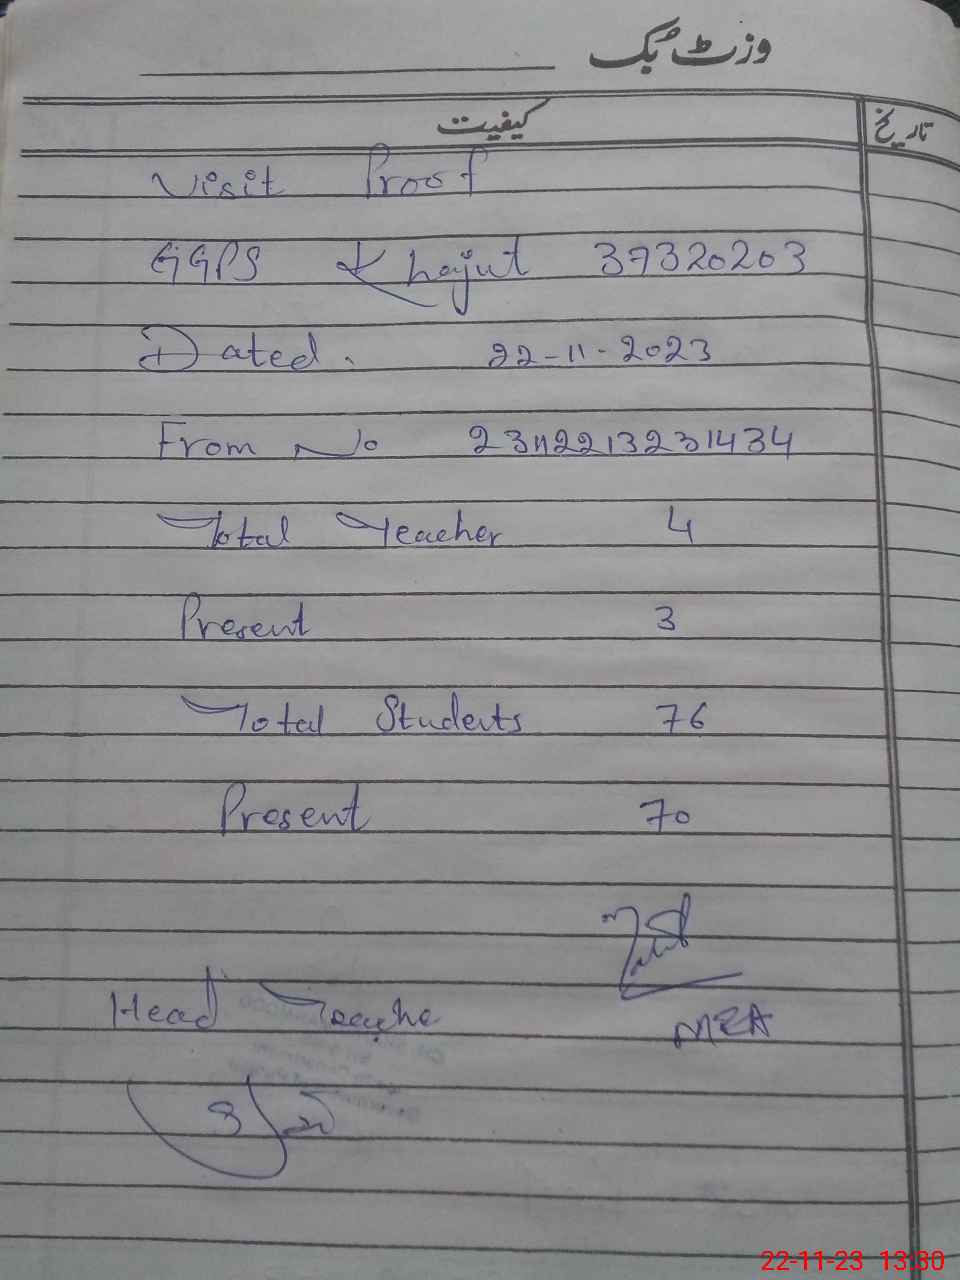 وزٹ بُک
کیفیت تاریخ
Visit Proof
GGPS Khajut 37320203
Dated. 22-11-2023
From No 23112213231434
Total Teacher 4
Present 3
Total Students 76
Present 70
Head Teache
MEA
22-11-23 13:30